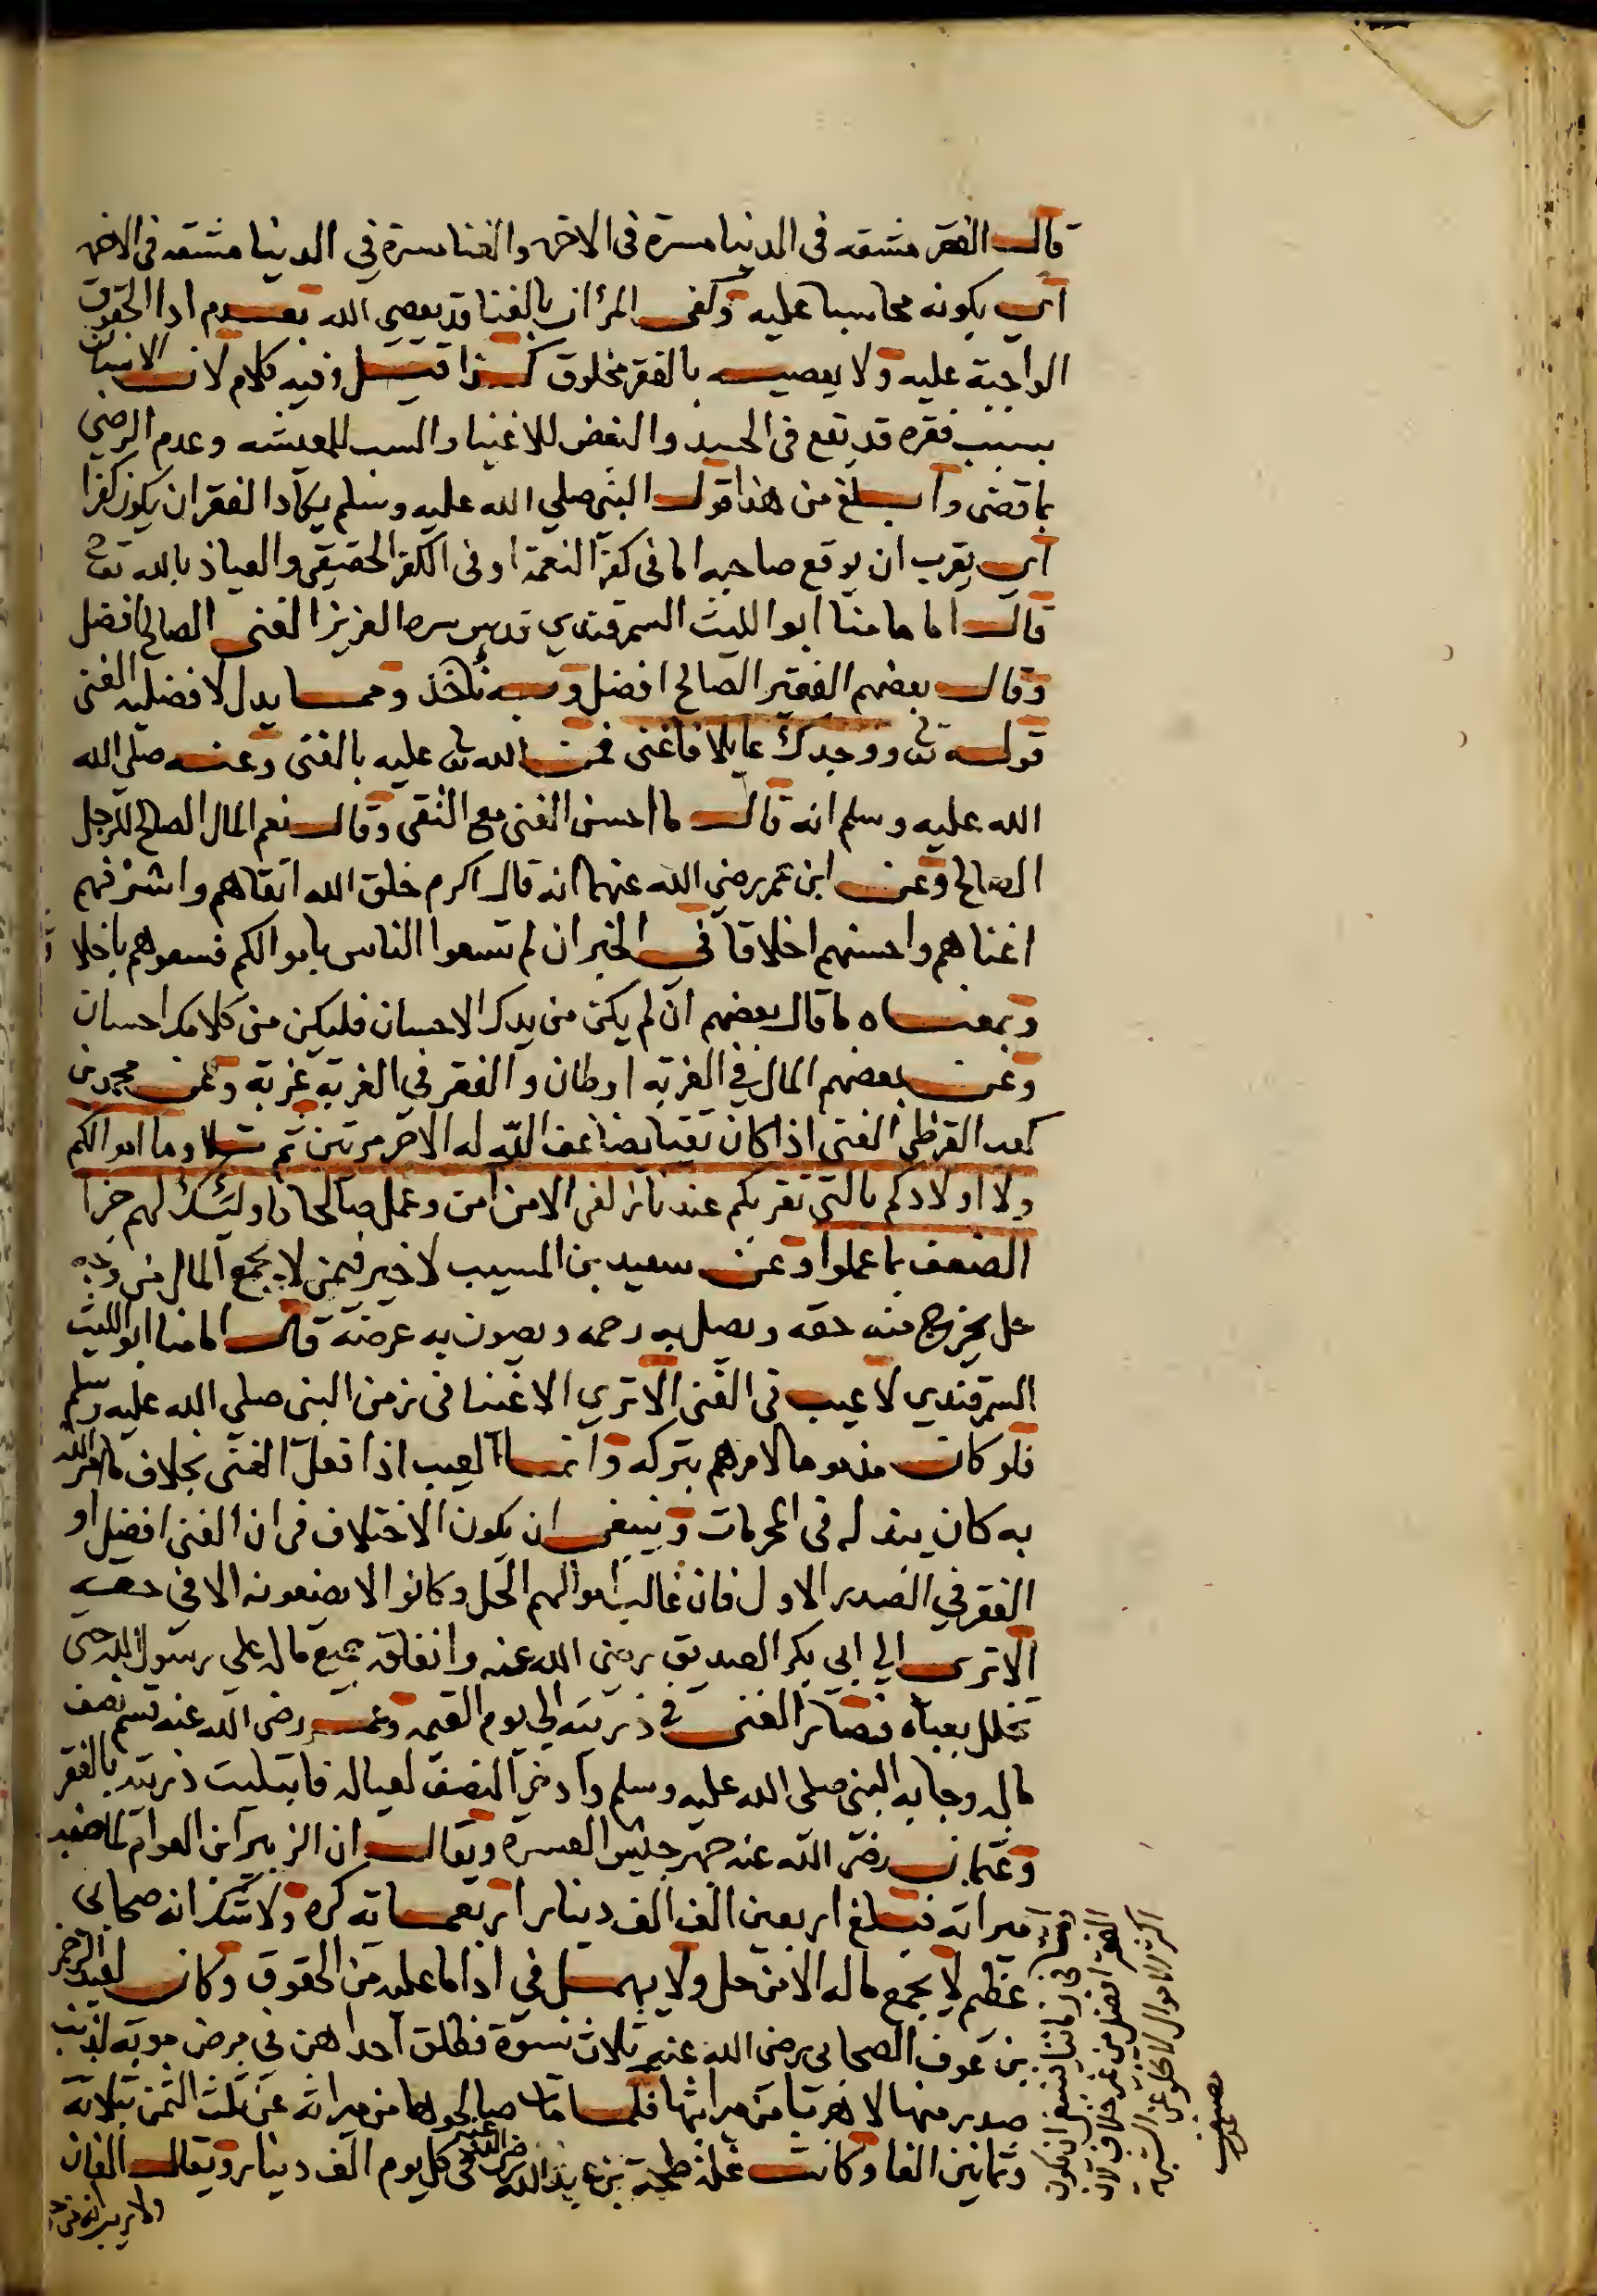 قال الفقر مشقه فى الدنيا مسرة فى الاخره والغنا مسرة في الدنيا مشقه فى الاخره
اي بكونه محاسبا عليه وكفى المرٔ ان بالغنا قد يعصي الله بعدم ادا الحقوق
الواجبة عليه ولا يعصيه بالفقر مخلوق كذا قيل وفيه كلام لان الانسان
بسبب فقره قد يقع فى الحسد والبغض للاغنيا والسب للمعيشه وعدم الرضي
بما قضى وابلغ من هذا قول النبى صلي الله عليه وسلم يكاد الفقر ان يكون كفرا
اي يقرب ان يوقع صاحبه اما فى كفر النعمة او فى الكفر الحقيقي والعياذ بالله تعالى
قال امامنا ابو الليث السمرقندي قدس سره العزيز الغنى الصالح افضل
وقال بعضهم الفقير الصالح افضل وبه نأخذ ومما يدل لافضليه الغنى
قوله تعالى ووجدك عايلا فاغنى فمن الله تعالى عليه بالغنى وعنه صلى الله
الله عليه وسلم انه قال ما احسن الغنى مع التقى وقال نعم المال الصالح للرجل
الصالح وعن ابن عمر رضي الله عنهما انه قال اكرم خلق الله اتقاهم واشرفهم
اغناهم واحسنهم اخلاقا فى الخبر ان لم تسعوا الناس باموالكم فسعوهم باخلا
وبمعناه ما قال بعضهم ان لم يكن من يدك الاحسان فليكن من كلامك احسان
وعن بعضهم المال في الغربة اوطان والفقر في الغربة غربة وعن محمد بن
كعب القرظي الغنى اذا كان تقيا يضاعف الله له الاجر مرتين ثم تلا وما اموالكم
ولا اولادكم بالتى تقربكم عندنا زلفى الا من امن وعمل صالحا فاولئك لهم جزا
الضعف بما عملوا وعن سعيد بن المسيب لا خير فيمن لا يجمع المال من وجه
حل يخرج منه حقه ويصل به رحمه ويصون به عرضه قال امامنا ابو الليث
السمرقندي لا عيب فى الغنى الا ترى الاغنيا فى زمن النبى صلي الله عليه وسلم
فلو كان مذموما لامرهم بتركه وانما العيب اذا فعل الغنى بخلاف ما امر الله
به كان يبذله فى المحرمات وينبغى ان يكون الاختلاف فى ان الغنى افضل او
الفقر في الصدر الاول فان غالب اموالهم الحل وكانوا لا يضعونه الا فى حقه
الا ترى الي ابي بكر الصديق رضى الله عنه وانفاقه جميع ماله علي رسول الله حتى
تخلل بعباه فصار الغنى في ذريته الي يوم القيمه وعمر رضى الله عنه قسم نصف
ماله وجا به النبى صلى الله عليه وسلم وادخر النصف لعياله فابتليت ذريته بالفقر
وعثمان رضى الله عنه جهز جيش العسرة ويقال ان الزبير ابن العوام لما ضبط
ميراثه فبلغ اربعين الف الف دينار اربعماية كره ولا شك انه صحابى
عظيم لا يجمع ماله الا من حل ولا يهمل في ادا ما عليه من الحقوق وكان لعبد الرحمن
بن عوف الصحابى رضى الله عنه ثلاث نسوة فطلق احداهن فى مرض موته
صدر منها لا هربا من ميراثها فلما مات صالحوها من ميراثه عن ثلث الثمن بثلاثة
وثمانين الفا وكانت غلة طلحة بن عبيد الله رضى الله عنه فى كل يوم الف دينار ويقال الفان
ولا ريب انه من
فى زماننا ينبغى ان يكون
الفقر افضل من غير خلاف لان
اكثر الاموال لا تخلو عن الشبهة